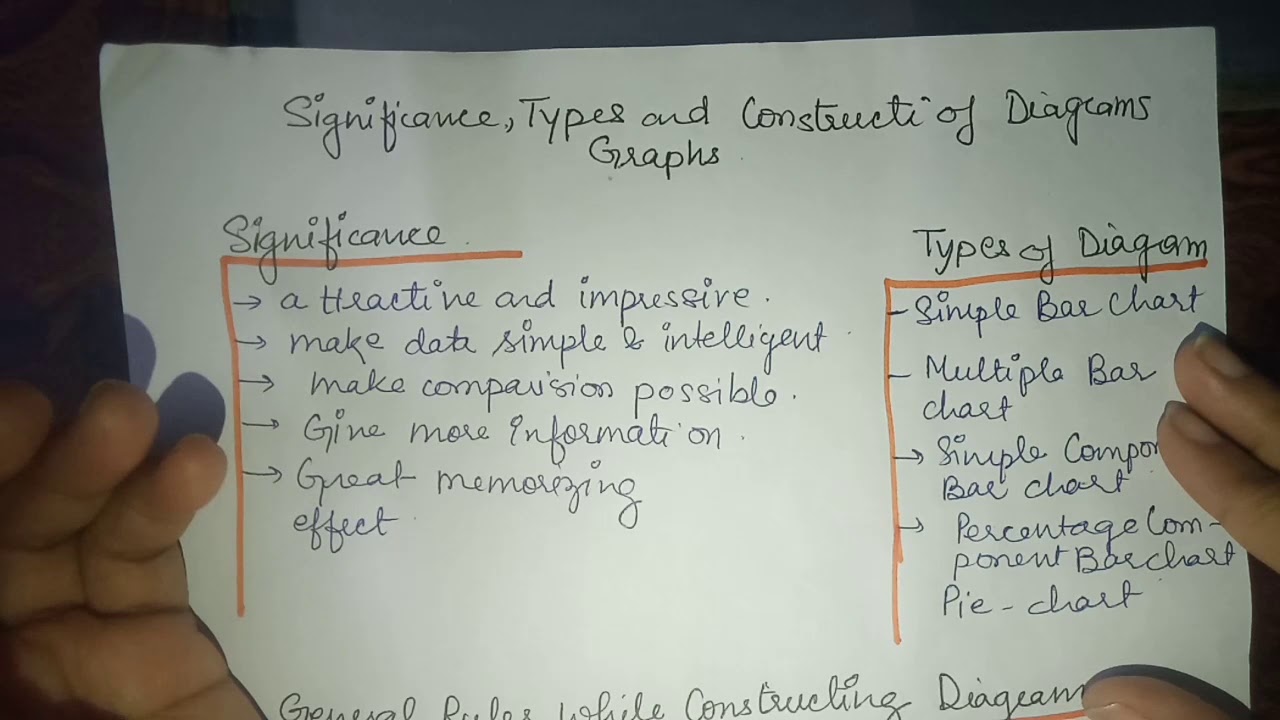 Significance, Types and Constructi of Diagrams
Graphs
Significance
→ attractive and impressive.
→ make data simple & intelligent
→ make comparision possible.
→ Give more information.
→ Great memorizing
effect
Types of Diagram
- Simple Bar Chart
- Multiple Bar
chart
→ Simple Compon
Bar chart
→ Percentage Com-
ponent Bar chart
Pie - chart
General Rules while Constructing Diagram